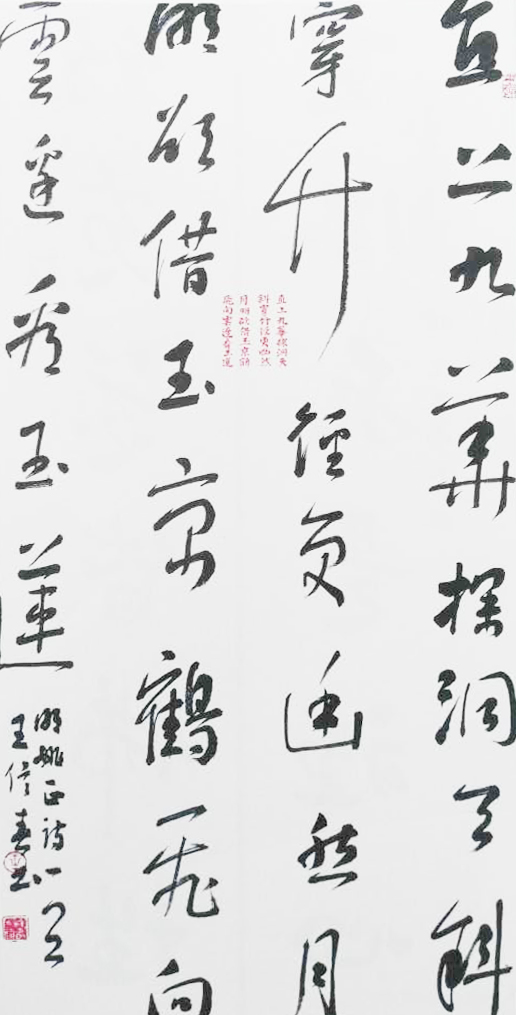 直上九華探洞天斜
穿竹徑更幽然月
明欲借玉京鶴飛向
雲邊看玉蓮
明姚正詩一首
王信春書
直上九華探洞天
斜穿竹徑更幽然
月明欲借玉京鶴
飛向雲邊看玉蓮